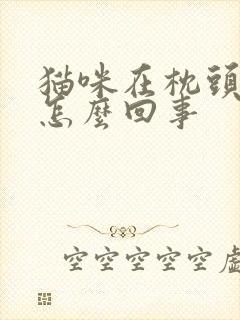 猫咪在枕頭
怎麼回事
空空空空空虛